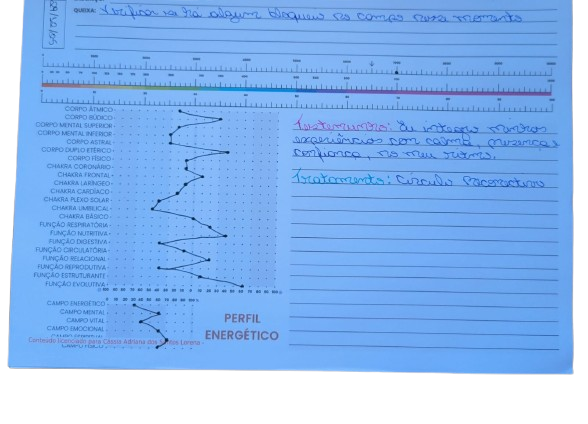 QUEIXA: Verificar se há algum bloqueio no campo nesse momento
CORPO ÁTMICO
CORPO BÚDICO
CORPO MENTAL SUPERIOR
CORPO MENTAL INFERIOR
CORPO ASTRAL
CORPO DUPLO ETÉRICO
CORPO FÍSICO
CHAKRA CORONÁRIO
CHAKRA FRONTAL
CHAKRA LARÍNGEO
CHAKRA CARDÍACO
CHAKRA PLEXO SOLAR
CHAKRA UMBILICAL
CHAKRA BÁSICO
FUNÇÃO RESPIRATÓRIA
FUNÇÃO NUTRITIVA
FUNÇÃO DIGESTIVA
FUNÇÃO CIRCULATÓRIA
FUNÇÃO RELACIONAL
FUNÇÃO REPRODUTIVA
FUNÇÃO ESTRUTURANTE
FUNÇÃO EVOLUTIVA
CAMPO ENERGÉTICO
CAMPO MENTAL
CAMPO VITAL
CAMPO EMOCIONAL
Conteúdo licenciado para Cássia Adriana dos Santos Lorena -
PERFIL
ENERGÉTICO
Testemunho: Eu integro minhas
experiências com calma, presença e
confiança, no meu ritmo.
Tratamento: Círculo